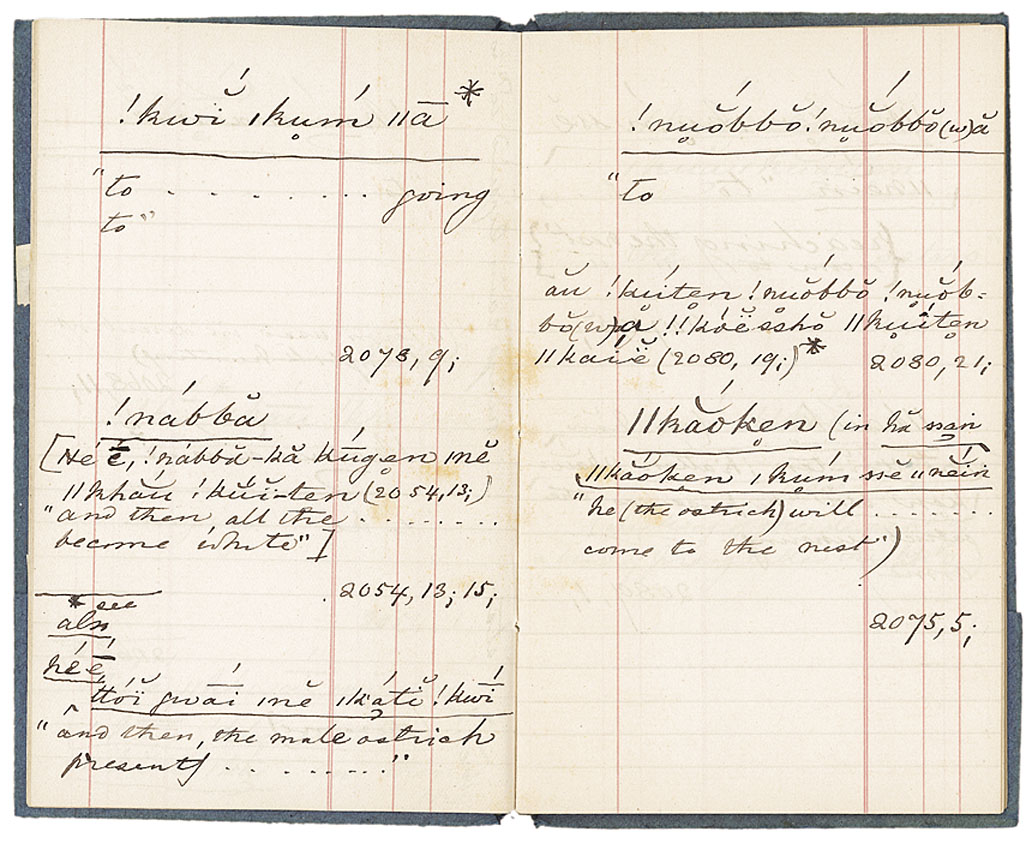 !kwĭ ıkụḿ ııā *
"to . . . . . . . . going
to"
2073, 9;
!nábbă
[Hé ē, !nábbă-kă kúgen ınĕ
ııkhău !kŭĭ-ten (2054,13;)
"and then, all the . . . . . . . .
become white"]
2054, 13; 15;
* see
also
hé ē,
ttóĭ gwāi ınĕ ıkátĭ !kwĭ
"and then, the male ostrich
presently . . . . . . . . . ."
!nụóbbŏ!nụóbbŏ(w)ă
"to
ău !kúĭten !nŭóbbŏ !nŭób-
bŏ(w)ă !!kóësshŏ ııkụ́ĭten
ııkaiĕ (2080, 19;) * 2080, 21;
ııkăoḳen (in hă ssan
ııkăoḳen ıkụḿ ssĕ ıınĕin
"he (the ostrich) will . . . . . . .
come to the nest")
2075, 5;